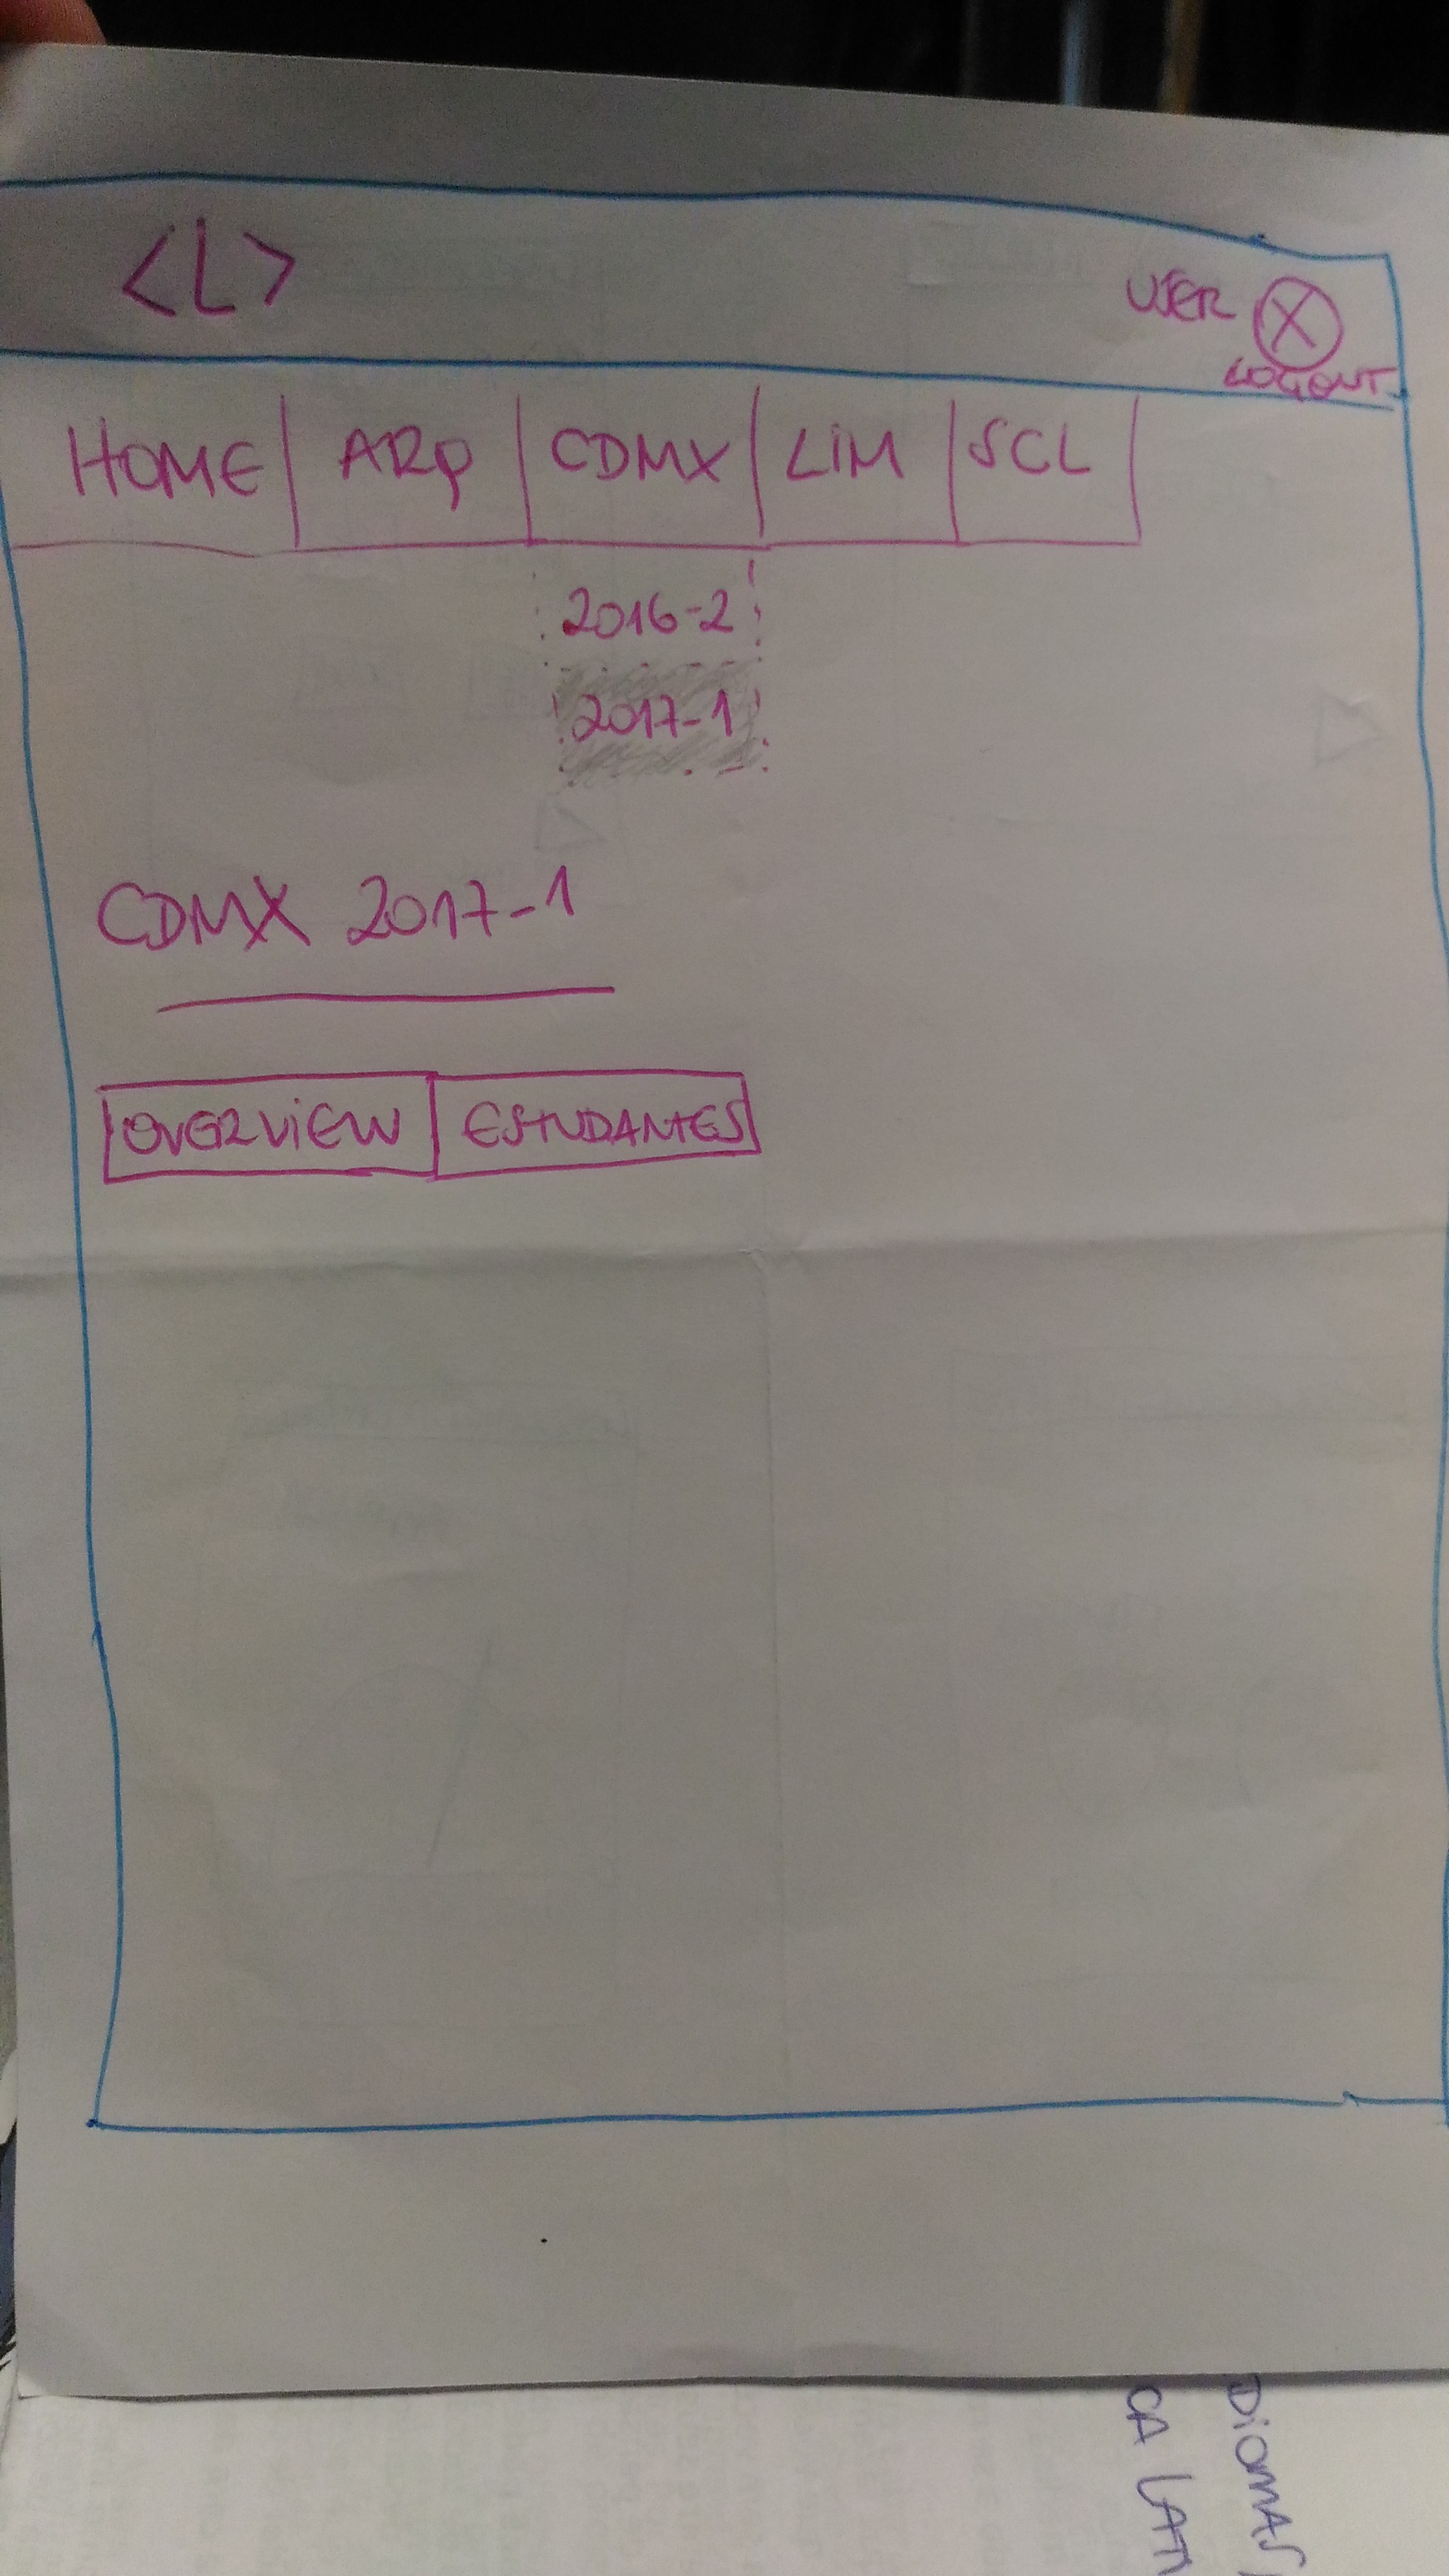 <L>
USER X
LOGOUT
HOME ARQ CDMX LIM SCL
2016-2
2017-1
CDMX 2017-1
OVERVIEW ESTUDANTES
DIOMAS
CA LATI